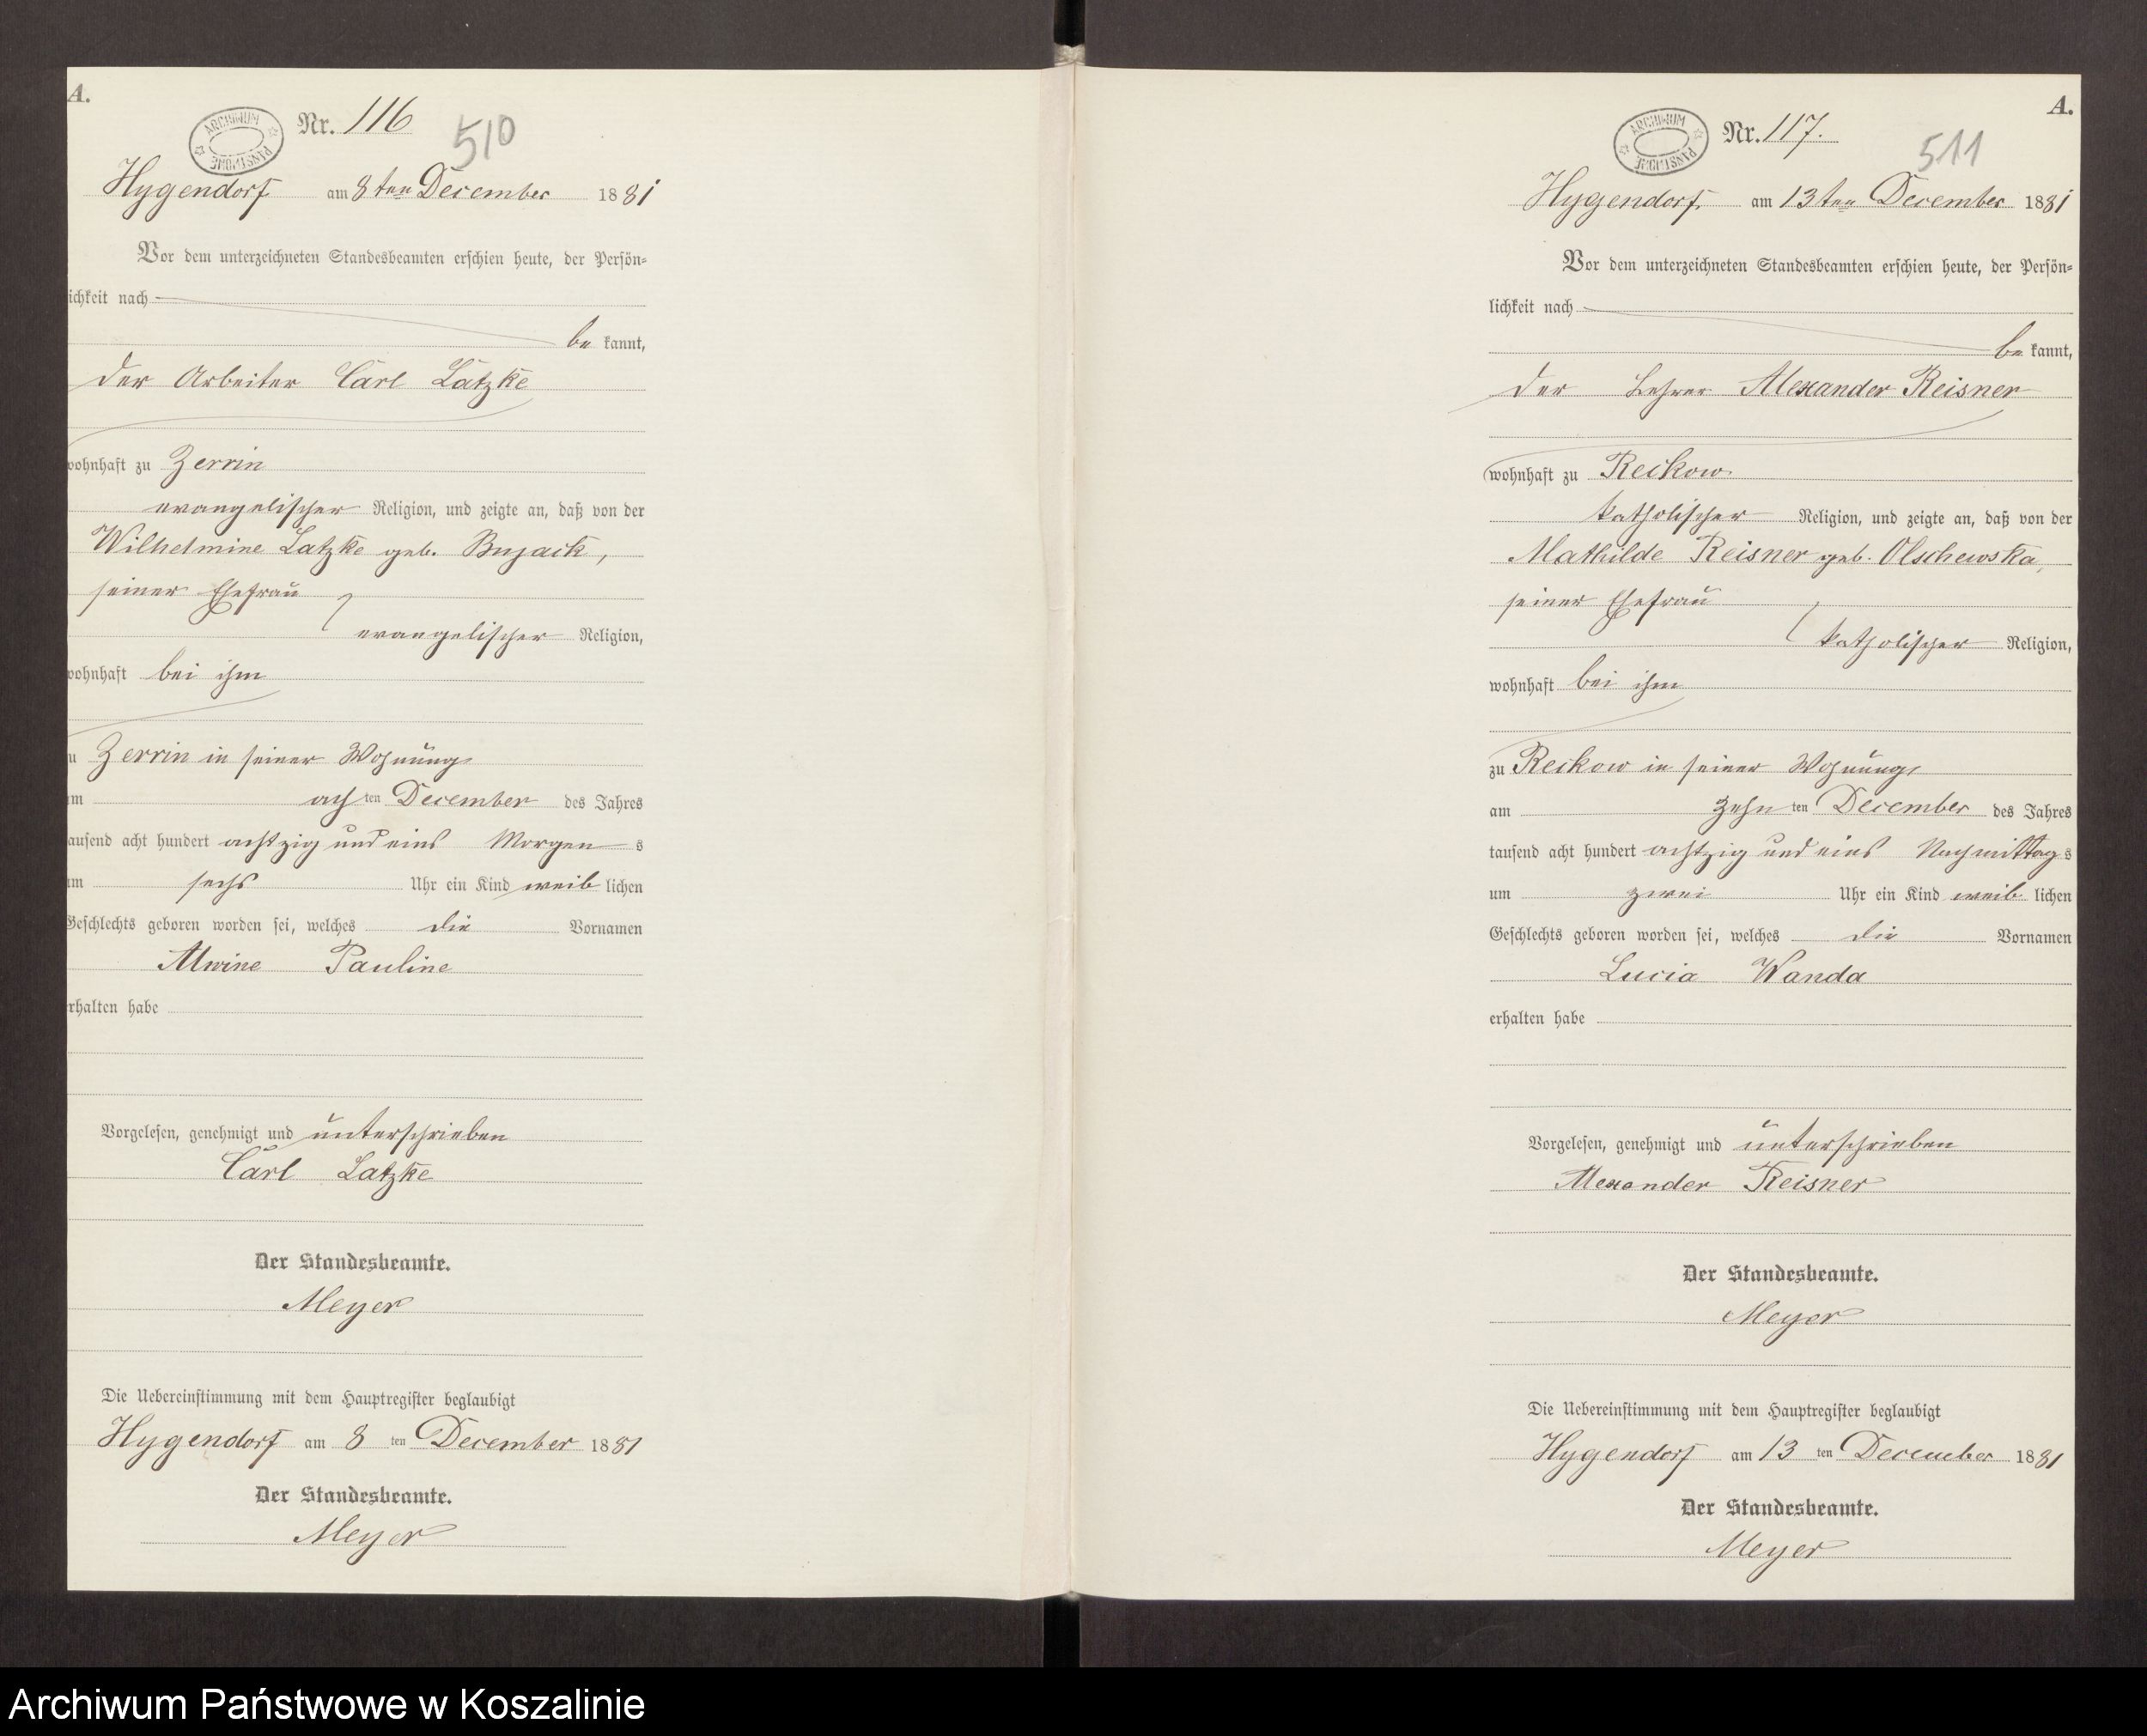 A.
ARCHIWUM PAŃSTWOWE
Nr. 116
510
Hygendorf am 8ten December 1881
Vor dem unterzeichneten Standesbeamten erschien heute, der Persön-
ichkeit nach
be kannt,
der Arbeiter Carl Latzke
wohnhaft zu Zerrin
evangelischer Religion, und zeigte an, daß von der
Wilhelmine Latzke geb. Bujack,
seiner Ehefrau
evangelischer Religion,
wohnhaft bei ihm
u Zerrin in seiner Wohnung
am ach ten December des Jahres
tausend acht hundert achtzig und eins Morgen s
um sechs Uhr ein Kind weib lichen
Geschlechts geboren worden sei, welches die Vornamen
Alwine Pauline
erhalten habe
Vorgelesen, genehmigt und unterschrieben
Carl Latzke
Der Standesbeamte.
Meyer
Die Uebereinstimmung mit dem Hauptregister beglaubigt
Hygendorf am 8 ten December 1881
Der Standesbeamte.
Meyer
A.
ARCHIWUM PAŃSTWOWE
Nr. 117.
511
Hygendorf, am 13ten December 1881
Vor dem unterzeichneten Standesbeamten erschien heute, der Persön-
lichkeit nach
be kannt,
der Lehrer Alexander Reisner
wohnhaft zu Reckow
katholischer Religion, und zeigte an, daß von der
Mathilde Reisner geb. Olschewska,
seiner Ehefrau
katholischer Religion,
wohnhaft bei ihm
zu Reckow in seiner Wohnung
am zehn ten December des Jahres
tausend acht hundert achtzig und eins Nachmittag s
um zwei Uhr ein Kind weib lichen
Geschlechts geboren worden sei, welches die Vornamen
Lucia Wanda
erhalten habe
Vorgelesen, genehmigt und unterschrieben
Alexander Reisner
Der Standesbeamte.
Meyer
Die Uebereinstimmung mit dem Hauptregister beglaubigt
Hygendorf am 13 ten December 1881
Der Standesbeamte.
Meyer
Archiwum Państwowe w Koszalinie